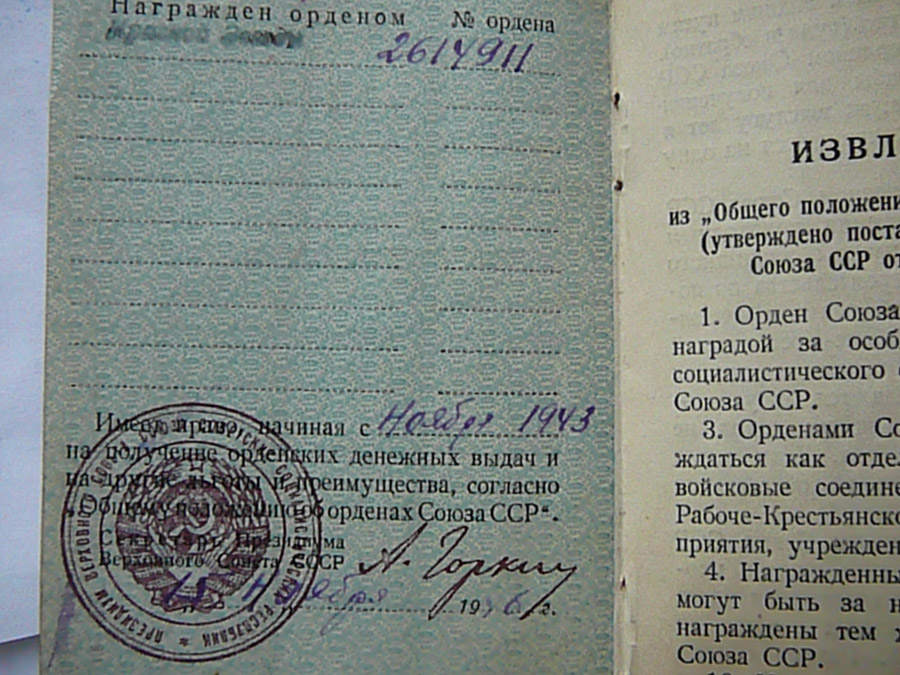 Награжден орденом № ордена
Красной Звезды 2614911
Имеет право, начиная с Ноября 1943
на получение орденских денежных выдач и
на другие льготы и преимущества, согласно
„Общему положению об орденах Союза ССР“.
Секретарь Президиума
Верховного Совета СССР А. Горкин
15 Ноября 1946 г.
ИЗВЛ
из „Общего положени
(утверждено поста
Союза ССР от
1. Орден Союза
наградой за особ
социалистического
Союза ССР.
3. Орденами Со
ждаться как отдел
войсковые соедине
Рабоче-Крестьянско
приятия, учрежден
4. Награжденны
могут быть за н
награждены тем
Союза ССР.